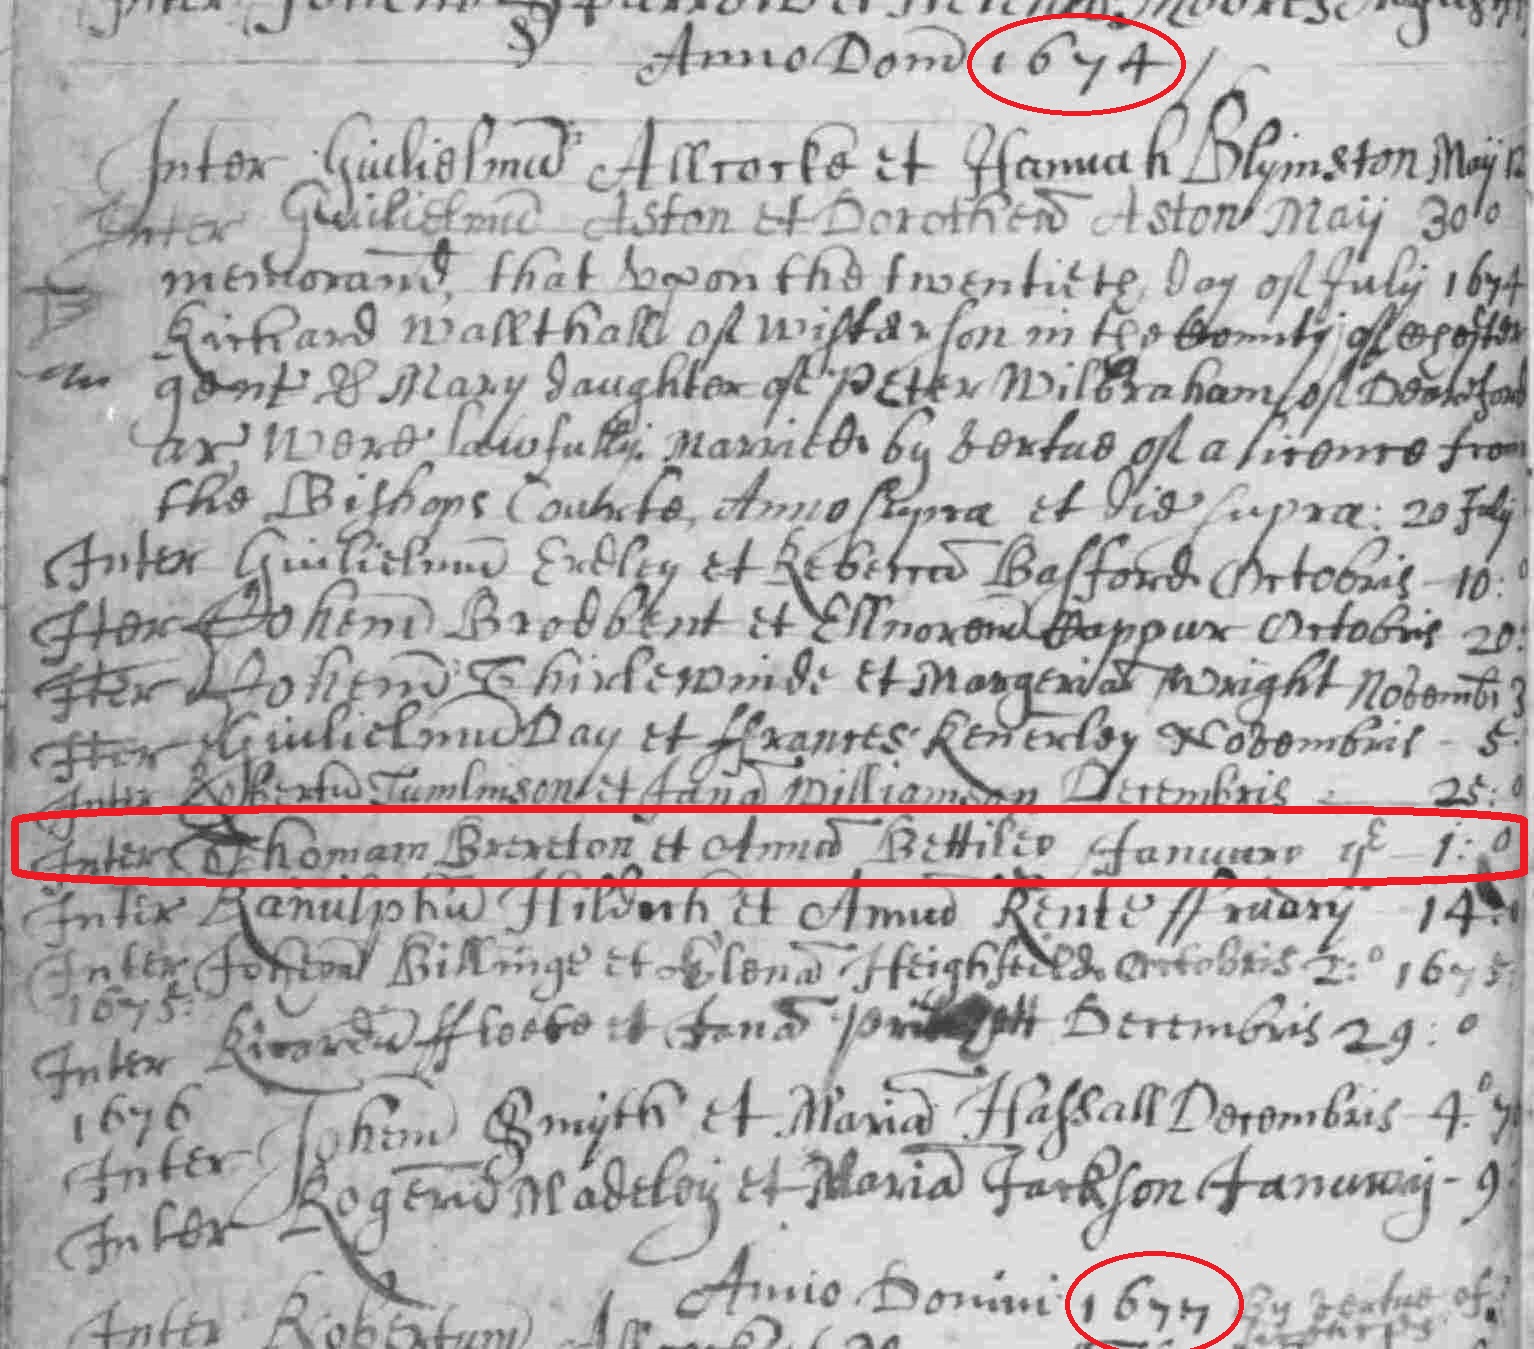 Anno Dom 1674
Inter Guilielmū Allcocke et Hannah Blymston Maij 12
Inter Guilielmū Aston et Dorotheā Aston Maij 30 0
memorand, that vpon the twentieth day of July 1674
Richard Wallthall of Wistaston in the County of Chester
gent & Mary daughter of Peter Wilbraham of
ar were lawfully Married by vertue of a licence from
the Bishops Courte, Anno supra et die supra: 20 July
Inter Guilielmū Erdley et Rebeccā Basford Octobris 10: 0
Iter Johem Brodbent et Ellnorem Octobris 20:
Iter Johem Thirlewinde et Margeriā Wright Novemb 3
Iter Guilielmū Day et ffrances Kenerley Novembris - 5:
Inter Robertū Tumlinson et Janā Williamson Decembris 25: 0
Inter Thomam Brereton et Annā Bettiley January ye 1: 0
Inter Ranulphū Hilditch et Annā Kente ffruary 14: 0
Inter Johem Billinge et Elenā Heighfeilde Octobris 2: 0 1675:
1675:
Inter Ricardū et Janā Decembris 29: 0
1676
Inter Johem Smyth et Mariā Hassall Decembris - 4: 0
Inter Rogerū Madeley et Mariā Jackson January - 9
Anno Domini 1677 By vertue of
Inter Robertum